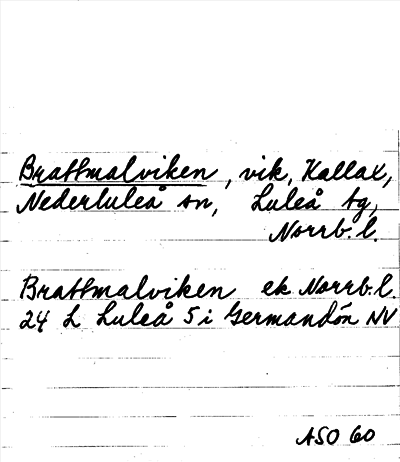 Brattmalviken, vik, Kallax,
Nederluleå sn, Luleå tg,
Norrb. l.
Brattmalviken ek Norrb. l.
24 L Luleå 5 i Germandön NV
ASO 60